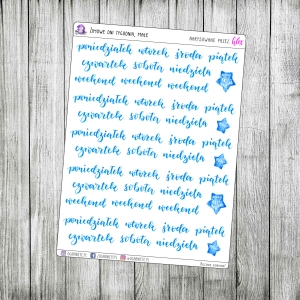 ZIMOWE DNI TYGODNIA, MAŁE
NARYSOWANE PRZEZ
poniedziałek wtorek środa piątek
czwartek sobota niedziela
weekend weekend weekend
poniedziałek wtorek środa piątek
czwartek sobota niedziela
poniedziałek wtorek środa piątek
czwartek sobota niedziela
weekend weekend weekend
poniedziałek wtorek środa piątek
czwartek sobota niedziela